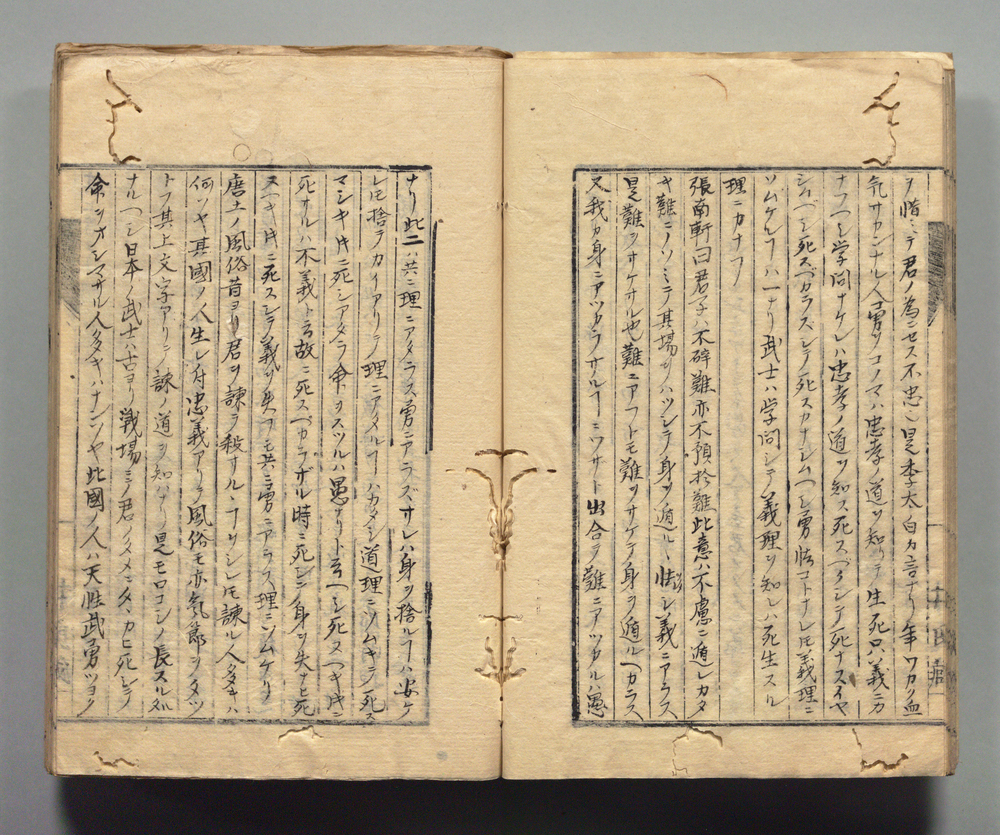 ヲ惜ミテ君ノ為ニセス不忠也是李太白カ言ナリ年ワカク血
気サカンナル人勇ヲコノマハ忠孝ノ道ヲ知リテ生死只義ニカ
ナフヘシ学問ナケレハ忠孝ノ道ヲ知ス死スヘクシテ死ナスイヤ
シムヘシ死スベカラスシテ死スカナシムヘシ勇怯コトナレ𪜈義理ニ
ソムケルヿハ一ナリ武士ハ学問シテ義理ヲ知レハ死生スル
理ニカナフ
張南軒曰君子ハ不辟難亦不預於難此意ハ不慮ニ遁レカタ
キ難ニノソミテ其場ヲハツシテ身ヲ遁ルヽハ怯シ義ニアラス
是難ヲサケサル也難ニアフトモ難ヲサケテ身ヲ遁ルヘカラス
又我カ身ニアツカラサルヿニワサト出合テ難ニアツカルハ愚
ナリ此二ハ共ニ理ニアタラス勇ニアラズサレハ身ヲ捨ルヿハ安ケ
レ𪜈捨テヲカイアリテ理ニアタルヿハカタシ道理ニソムキテ死ス
マシキ時ニ死シアタラ命ヲスツルハ愚ナリト云ヘシ死スヘキ時ニ
死サルハ不義ト云故ニ死スベカラザル時ニ死シテ身ヲ失ナヒ死
スヘキ時ニ死スシテ義ヲ失フモ共ニ勇ニアラス理ニソムケリ
唐土ノ風俗昔ヨリ君ヲ諫テ殺サルヽヿヲシレ𪜈諫ル人多キハ
何ソヤ其國ノ人生レ付忠義アリテ風俗モ亦気節ヲタツ
トフ其上文字アリテ諫ノ道ヲ知ナリ是モロコシノ長スル処
ナルヘシ日本ノ武士ハ古ヨリ戦場ニテ君ノタメニタヽカヒ死シテ
命ヲオシマサル人多キハナンソヤ此國ノ人ハ天性武勇ツヨク